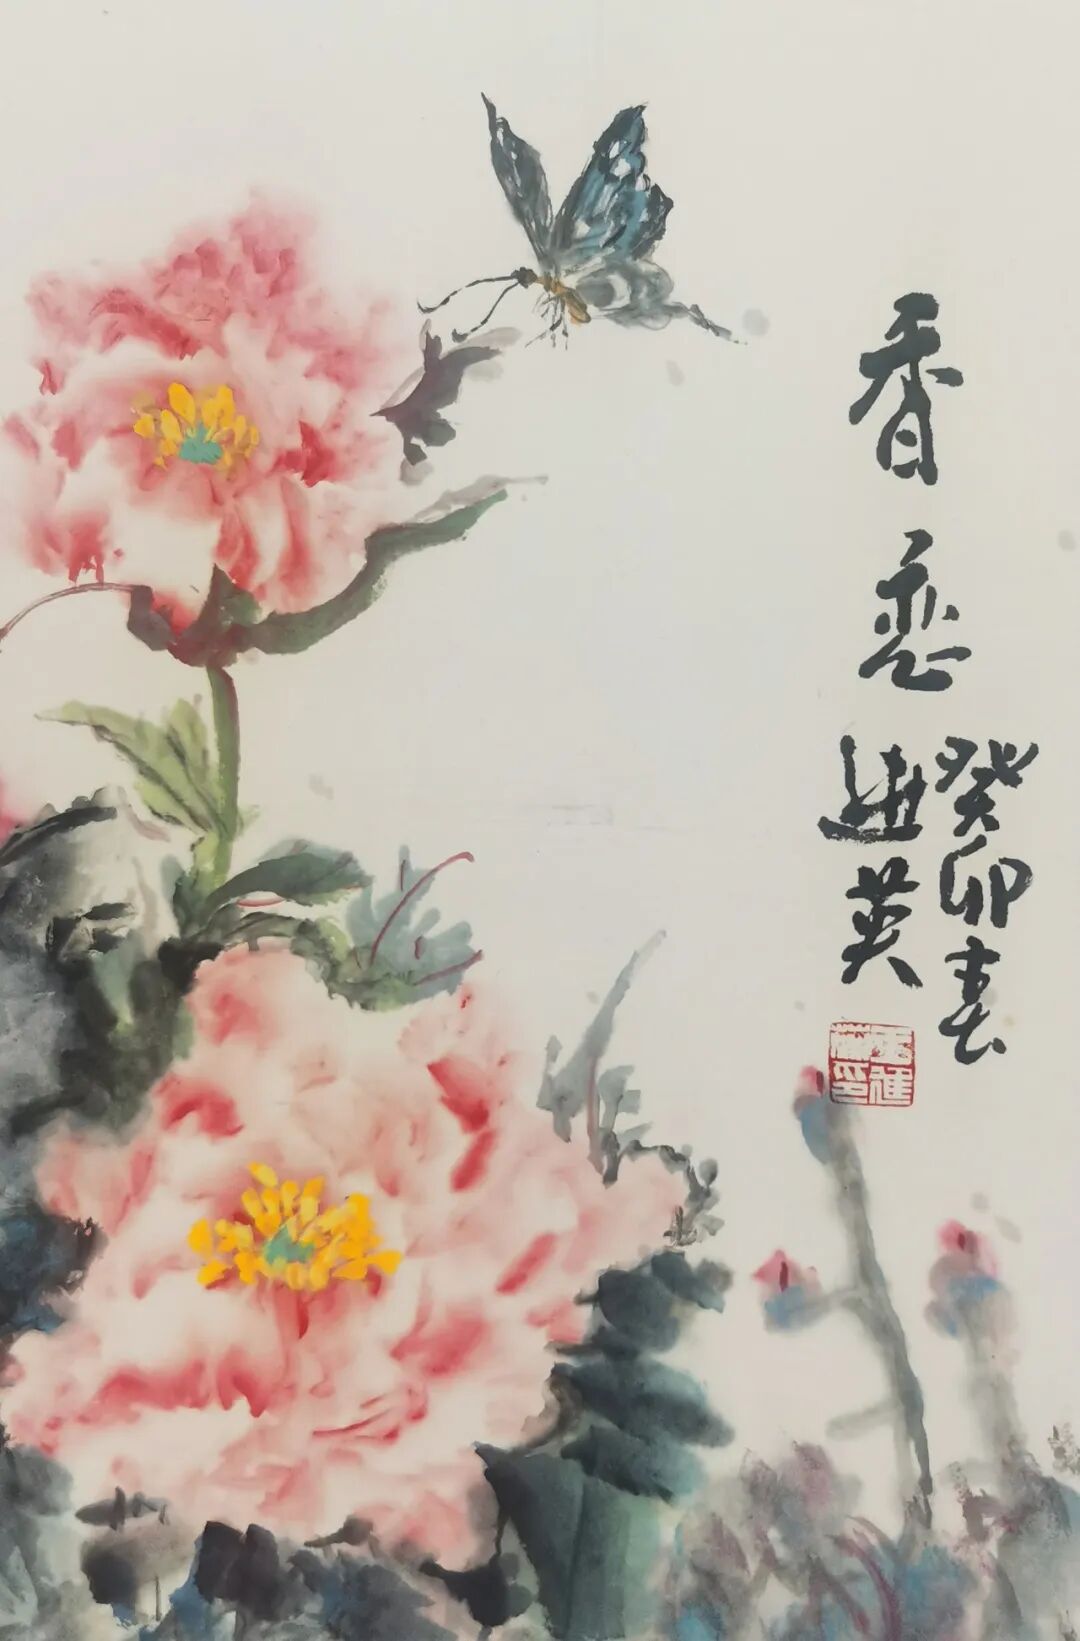 香恋
癸卯春
進英